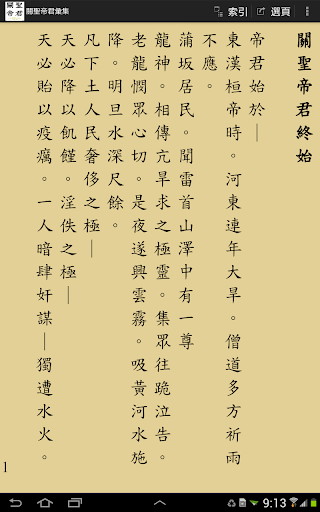 關聖帝君彙集
索引
選頁
關聖帝君終始
帝君始於—
東漢桓帝時。河東連年大旱。僧道多方祈雨
不應。
蒲坂居民。聞雷首山澤中有一尊
龍神。相傳亢旱求之極靈。集眾往跪泣告。
老龍憫眾心切。是夜遂興雲霧。吸黃河水施
降。明旦水深尺餘。
凡下土人民奢侈之極—
天必降以飢饉。淫佚之極—
天必貽以疫癘。一人暗肆奸謀—獨遭水火。
1
9:13